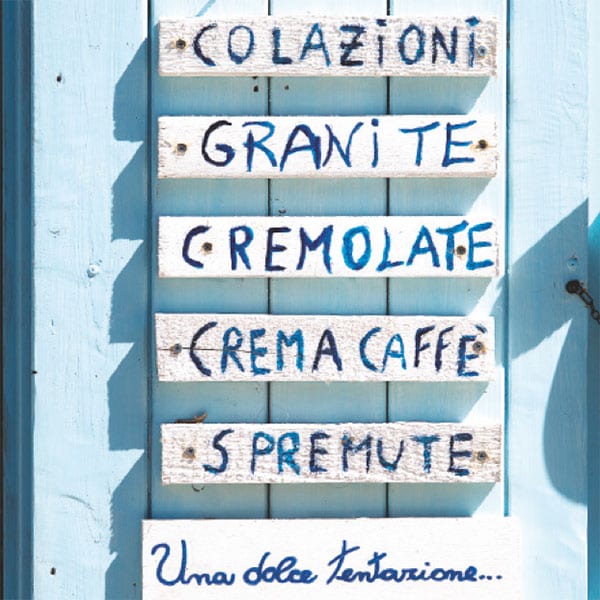 COLAZiONi
GRANiTE
CREMOLATE
CREMA CAFFÈ
SPREMUTE
Una dolce tentazione...